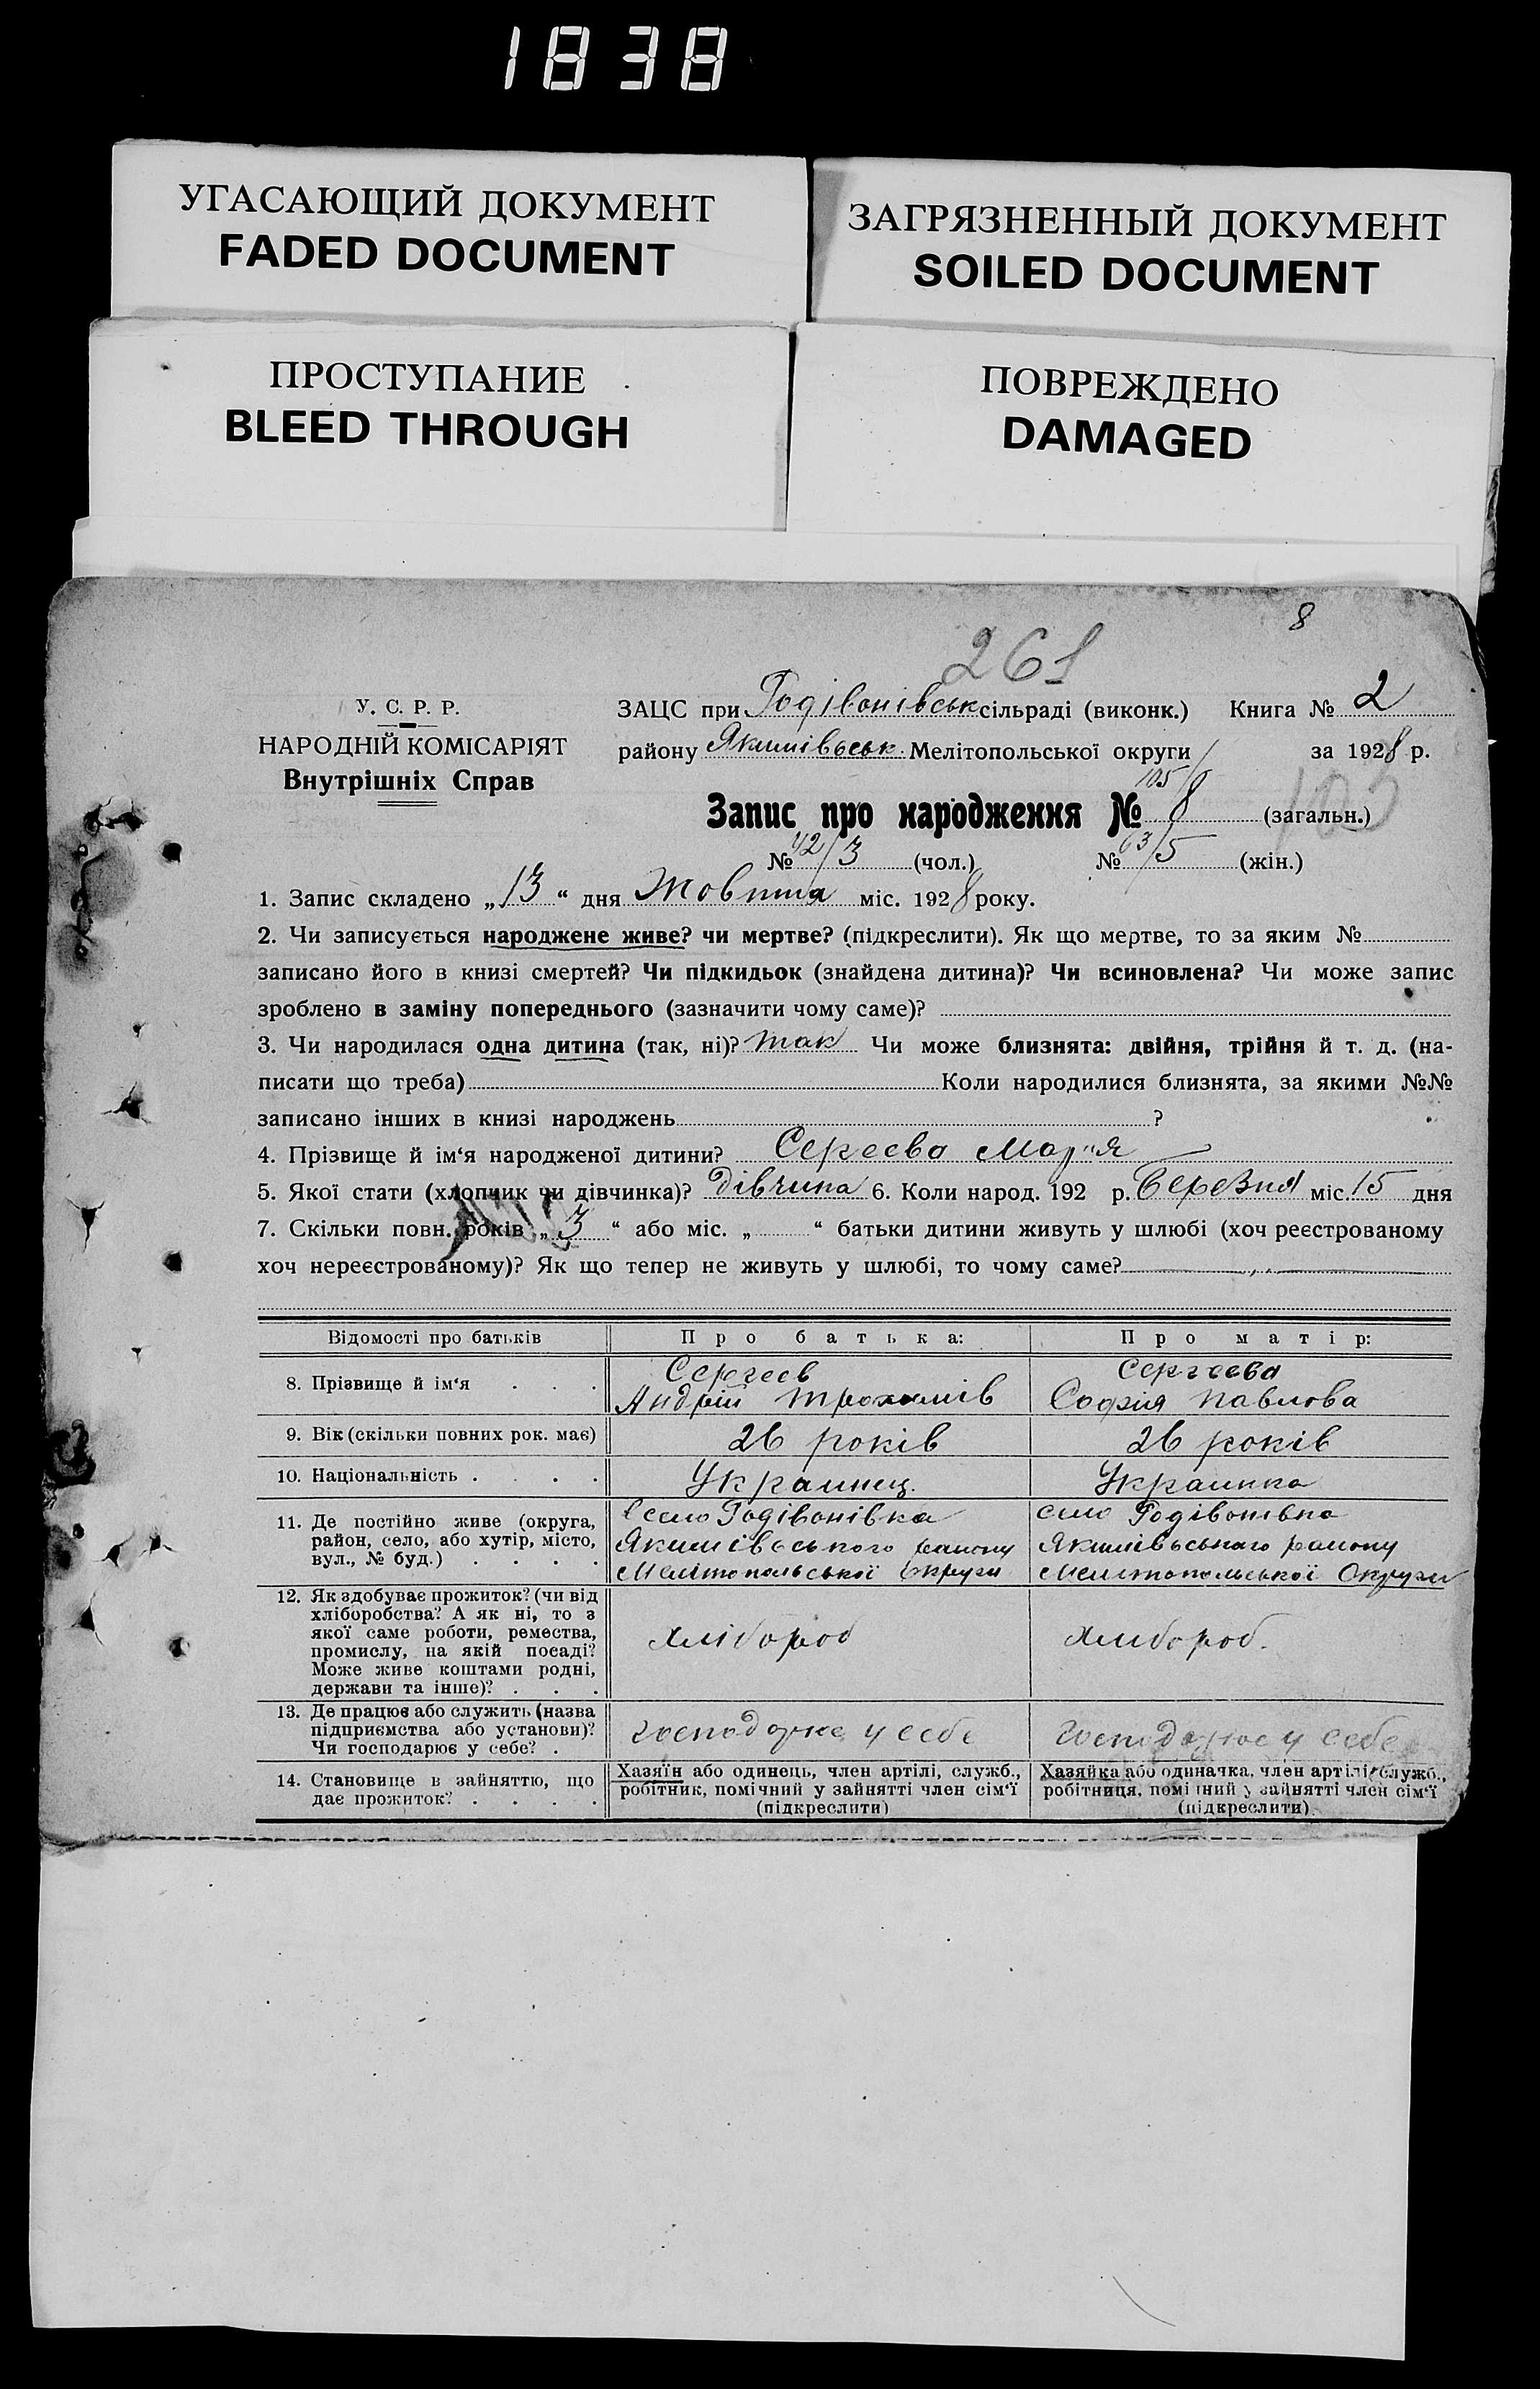 1838
УГАСАЮЩИЙ ДОКУМЕНТ
FADED DOCUMENT
ЗАГРЯЗНЕННЫЙ ДОКУМЕНТ
SOILED DOCUMENT
ПРОСТУПАНИЕ
BLEED THROUGH
ПОВРЕЖДЕНО
DAMAGED
8
261
У. С. Р. Р.
НАРОДНІЙ КОМІСАРІЯТ
Внутрішніх Справ
ЗАЦС при Родівонівськ сільраді (виконк.) Книга № 2
району Якимівськ. Мелітопольської округи за 1928 р.
103
Запис про народження № 105/8 (загальн.)
№ 42/3 (чол.) № 63/5 (жін.)
1. Запис складено „13“ дня Жовтня міс. 1928 року.
2. Чи записується народжене живе? чи мертве? (підкреслити). Як що мертве, то за яким №
записано його в книзі смертей? Чи підкидьок (знайдена дитина)? Чи всиновлена? Чи може запис
зроблено в заміну попереднього (зазначити чому саме)?
3. Чи народилася одна дитина (так, ні)? так Чи може близнята: двійня, трійня й т. д. (на-
писати що треба) Коли народилися близнята, за якими №№
записано інших в книзі народжень ?
4. Прізвище й ім‘я народженої дитини? Сергеєва Марія
5. Якої стати (хлопчик чи дівчинка)? дівчина 6. Коли народ. 192 р. Березня міс. 15 дня
7. Скільки повн. років „3“ або міс. „ “ батьки дитини живуть у шлюбі (хоч реєстрованому
хоч нереєстрованому)? Як що тепер не живуть у шлюбі, то чому саме?
Відомості про батьків Про батька: Про матір:
8. Прізвище й ім‘я Сергеєв Андрій Трохимів Сергеєва Софія Павлова
9. Вік (скільки повних рок. має) 26 років 26 років
10. Національність Украинец. Украинка
11. Де постійно живе (округа,
район, село, або хутір, місто,
вул., № буд.)
село Родівонівка
Якимівського району
Мелітопольської Округи
село Родівонівка
Якимівського району
Мелітопольської Округи
12. Як здобуває прожиток? (чи від
хліборобства? А як ні, то з
якої саме роботи, ремества,
промислу, на якій посаді?
Може живе коштами родні,
держави та інше)?
хлібороб
хлибороб.
13. Де працює або служить (назва
підприємства або установи)?
Чи господарює у себе?
господарює у себе
Господарює у себе
14. Становище в зайняттю, що
дає прожиток?
Хазяїн або одинець, член артілі, служб.,
робітник, помічний у зайнятті член сім‘ї
(підкреслити)
Хазяйка або одиначка, член артілі, служб.,
робітниця, помічний у зайнятті член сім‘ї
(підкреслити)